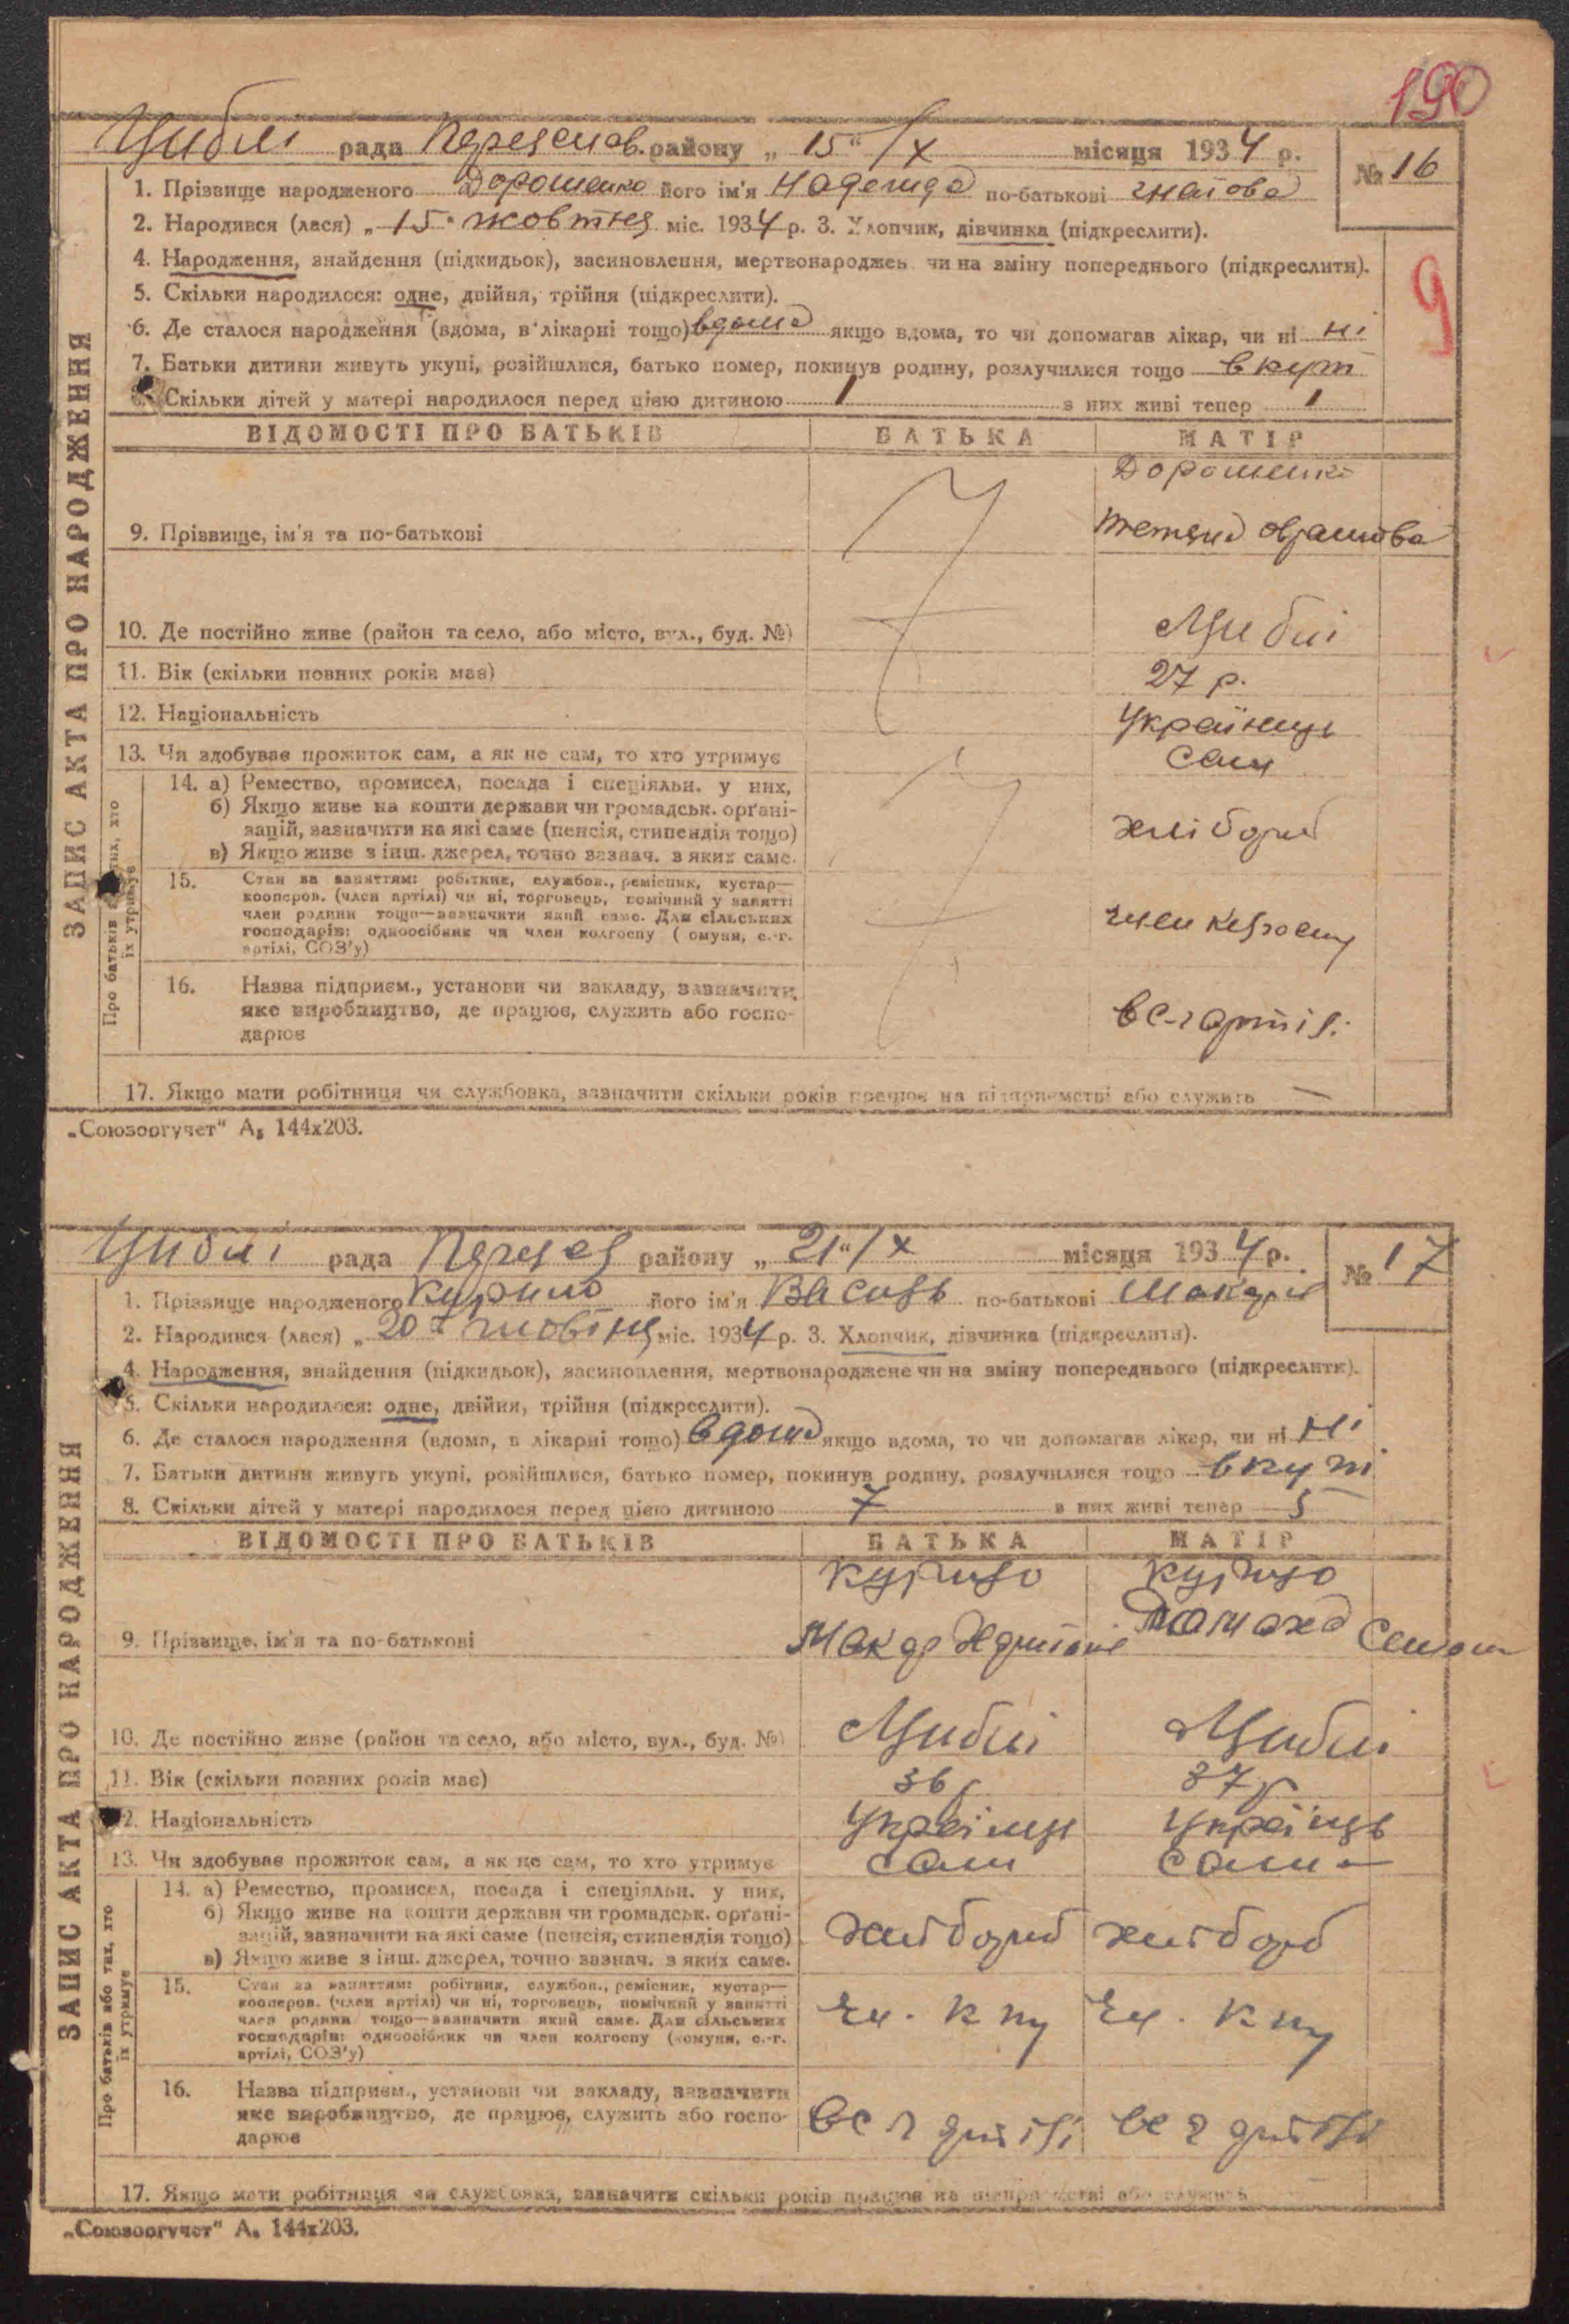 190
Циблі рада Переяслав. району „ 15 “ / X місяця 1934 р.
№ 16
1. Прізвище народженого Дорошенко його ім'я Надежда по-батькові Гнатова
2. Народився (лася) „ 15 " жовтня міс. 1934 р. 3. Хлопчик, дівчинка (підкреслити).
4. Народження, знайдення (підкидьок), засиновлення, мертвонароджен чи на зміну попереднього (підкреслити).
9
5. Скільки народилося: одне, двійня, трійня (підкреслити).
6. Де сталося народження (вдома, в лікарні тощо) вдома якщо вдома, то чи допомагав лікар, чи ні ні
7. Батьки дитини живуть укупі, розійшлися, батько помер, покинув родину, розлучилися тощо вкупі
Скільки дітей у матері народилося перед цією дитиною 1 з них живі тепер 1
ЗАПИС АКТА ПРО НАРОДЖЕННЯ
ВІДОМОСТІ ПРО БАТЬКІВ БАТЬКА МАТІР
Дорошенко
9. Прізвище, ім'я та по-батькові Тетяна
10. Де постійно живе (район та село, або місто, вул., буд. №) Циблі
11. Вік (скільки повних років має) 27 р.
12. Національність Українець
13. Чи здобуває прожиток сам, а як не сам, то хто утримує Сам
Про батьків або тих, хто їх утримує
14. а) Ремество, промисел, посада і спеціяльн. у них,
б) Якщо живе на кошти держави чи громадськ. орґані-
зацій, зазначити на які саме (пенсія, стипендія тощо) хлібороб
в) Якщо живе з інш. джерел, точно зазнач. з яких саме.
15. Стан за заняттям: робітник, службов., ремісник, кустар—
кооперов. (член артілі) чи ні, торговець, помічний у занятті
член родини тощо—зазначити який саме. Для сільських
господарів: одноосібник чи член колгоспу (комуни, с.-г.
артілі, СОЗ'у)
член
16. Назва підприєм., установи чи закладу, зазначити
яке виробництво, де працює, служить або госпо-
дарює
в с-г артілі
17. Якщо мати робітниця чи службовка, зазначити скільки років працює на підприємстві або служить —
„Союзоргучет“ А₅ 144х203.
Циблі рада Переяс району „ 21 “ / X місяця 1934 р.
№ 17
1. Прізвище народженого Курило його ім'я Василь по-батькові
2. Народився (лася) „ 20 " жовтня міс. 1934 р. 3. Хлопчик, дівчинка (підкреслити).
4. Народження, знайдення (підкидьок), засиновлення, мертвонароджене чи на зміну попереднього (підкреслити).
5. Скільки народилося: одне, двійня, трійня (підкреслити).
6. Де сталося народження (вдома, в лікарні тощо) вдома якщо вдома, то чи допомагав лікар, чи ні ні
7. Батьки дитини живуть укупі, розійшлися, батько помер, покинув родину, розлучилися тощо вкупі
8. Скільки дітей у матері народилося перед цією дитиною 7 з них живі тепер 5
ЗАПИС АКТА ПРО НАРОДЖЕННЯ
ВІДОМОСТІ ПРО БАТЬКІВ БАТЬКА МАТІР
Курило Курило
9. Прізвище, ім'я та по-батькові Макар
10. Де постійно живе (район та село, або місто, вул., буд. №) Циблі Циблі
11. Вік (скільки повних років має) 36 р 37 р
12. Національність Українць Українць
13. Чи здобуває прожиток сам, а як не сам, то хто утримує сам сам
Про батьків або тих, хто їх утримує
14. а) Ремество, промисел, посада і спеціяльн. у них,
б) Якщо живе на кошти держави чи громадськ. орґані-
зацій, зазначити на які саме (пенсія, стипендія тощо) хлібороб хлібороб
в) Якщо живе з інш. джерел, точно зазнач. з яких саме.
15. Стан за заняттям: робітник, службов., ремісник, кустар—
кооперов. (член артілі) чи ні, торговець, помічний у занятті
член родини тощо—зазначити який саме. Для сільських
господарів: одноосібник чи член колгоспу (комуни, с.-г.
артілі, СОЗ'у)
чл. к пу чл. к пу
16. Назва підприєм., установи чи закладу, зазначити
яке виробництво, де працює, служить або госпо-
дарює
в с г артілі в с г артілі
17. Якщо мати робітниця чи службовка, зазначити скільки років працює на підприємстві або служить
„Союзоргучет“ А₅ 144х203.